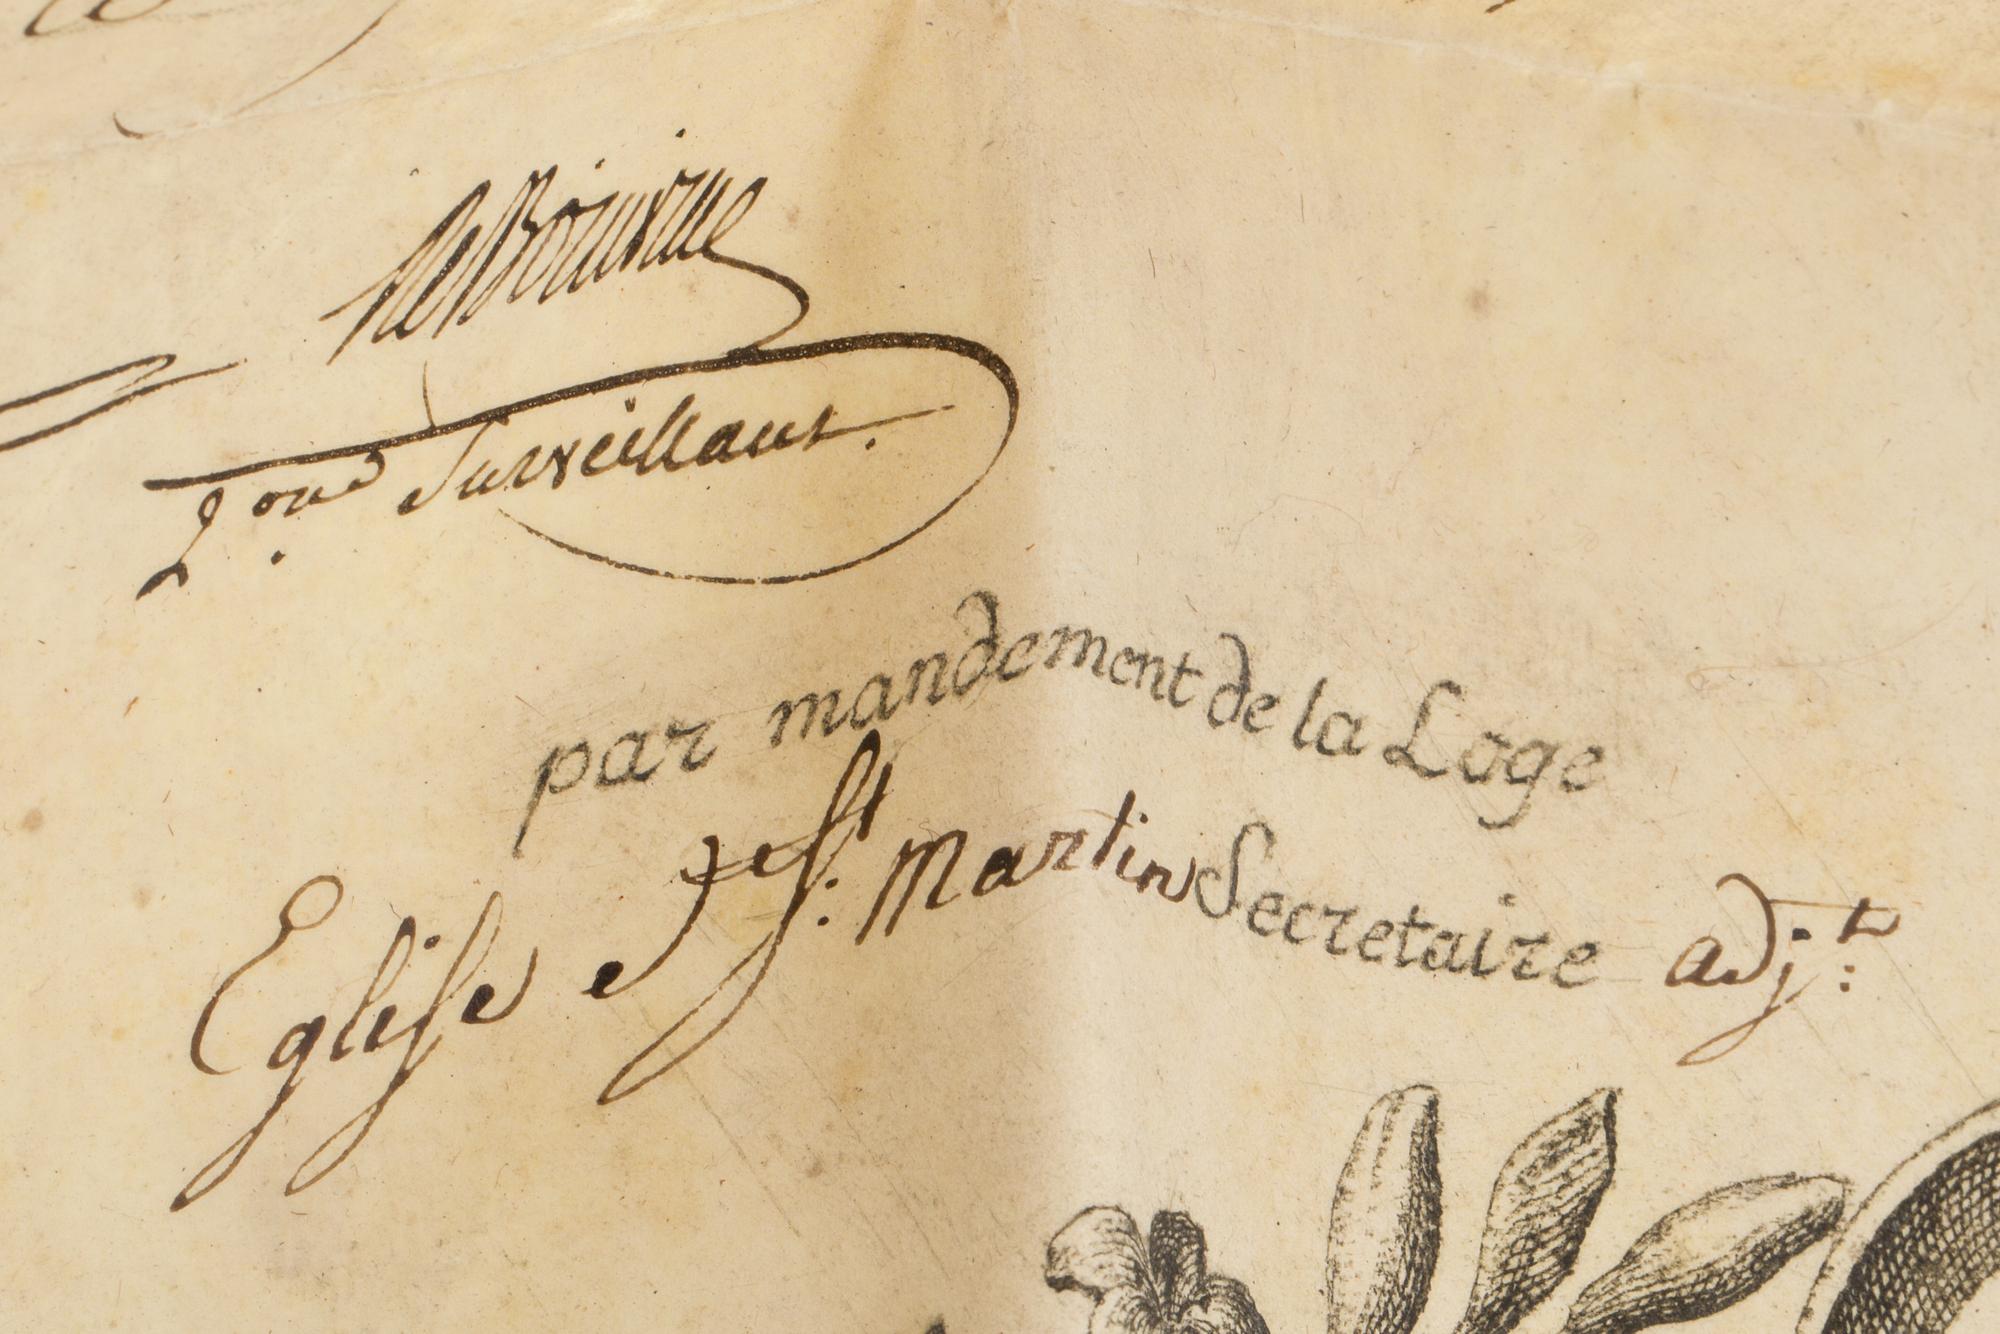 Le Boinvue
2.ond Surveillant.
par mandement de la Loge
Eglise de St. Martin Secretaire adj.t: